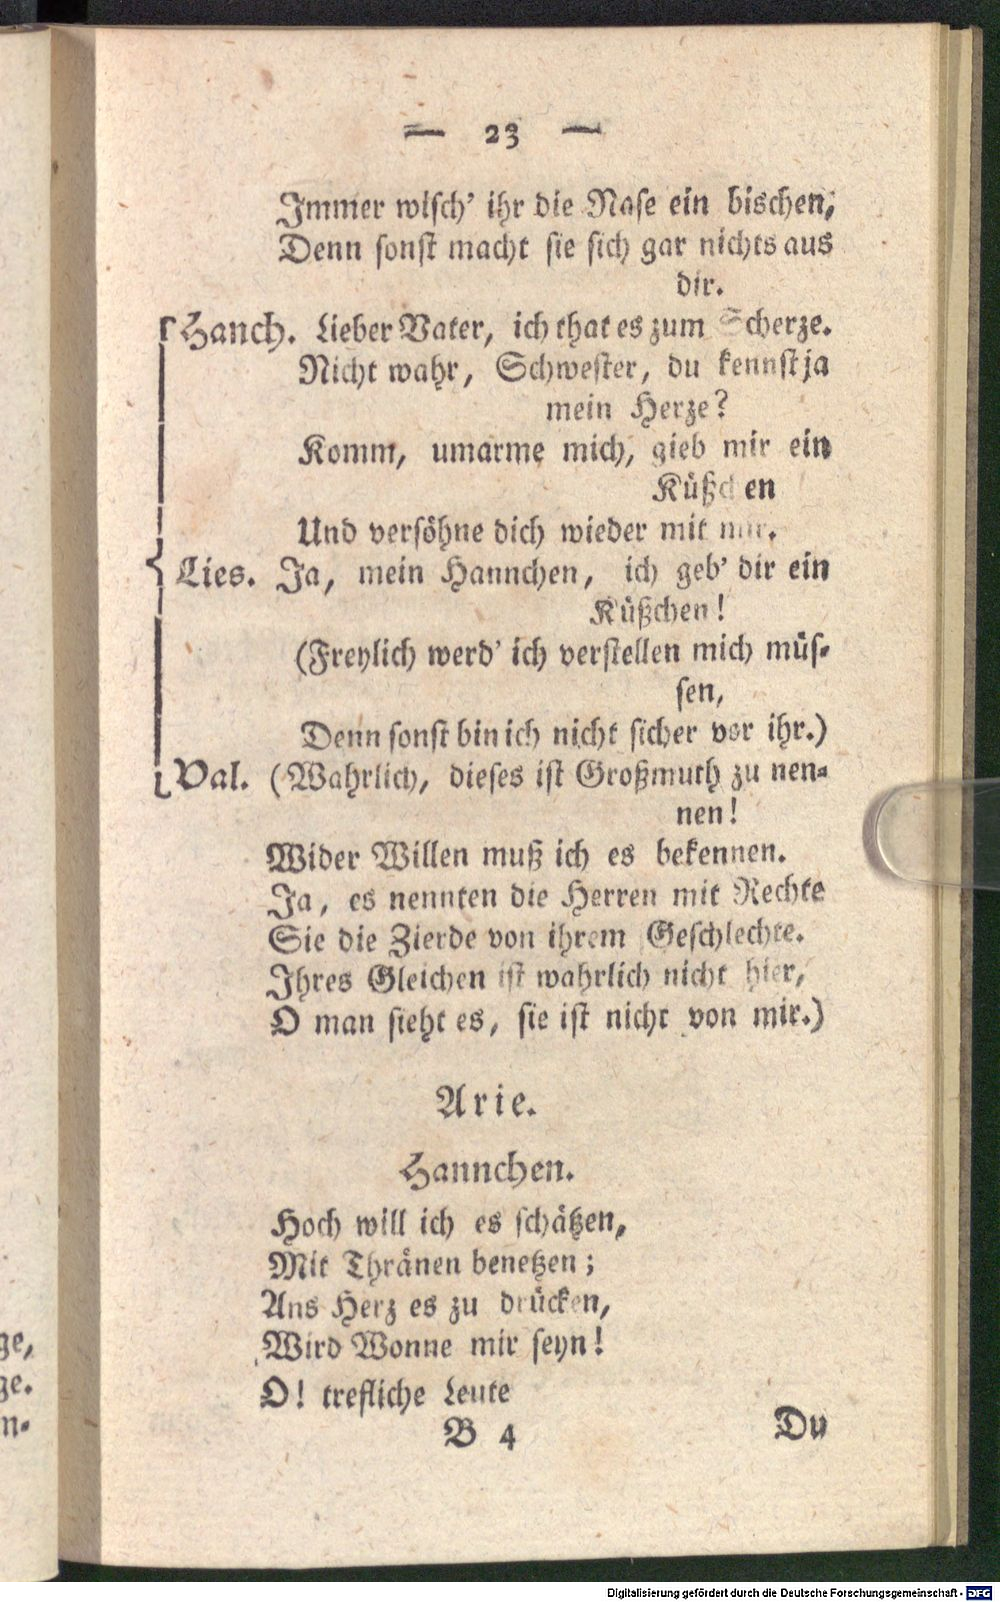 — 23 —
Immer wisch' ihr die Nase ein bischen,
Denn sonst macht sie sich gar nichts aus
dir.
Hanch. Lieber Vater, ich that es zum Scherze.
Nicht wahr, Schwester, du kennst ja
mein Herze?
Komm, umarme mich, gieb mir ein
Küßchen
Und versöhne dich wieder mit mir.
Lies. Ja, mein Hannchen, ich geb' dir ein
Küßchen!
(Freylich werd' ich verstellen mich müs-
sen,
Denn sonst bin ich nicht sicher vor ihr.)
Val. (Wahrlich, dieses ist Großmuth zu nen-
nen!
Wider Willen muß ich es bekennen.
Ja, es nennten die Herren mit Rechte
Sie die Zierde von ihrem Geschlechte.
Ihres Gleichen ist wahrlich nicht hier,
O man sieht es, sie ist nicht von mir.)
Arie.
Hannchen.
Hoch will ich es schätzen,
Mit Thränen benetzen;
Ans Herz es zu drücken,
Wird Wonne mir seyn!
O! trefliche Leute
B 4 Du
ge,
ge.
n-
Digitalisierung gefördert durch die Deutsche Forschungsgemeinschaft - DFG